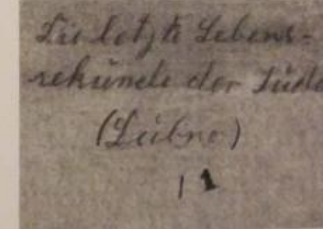 Die letzte Lebens-
sekunde der Jude
(Leibno)
11